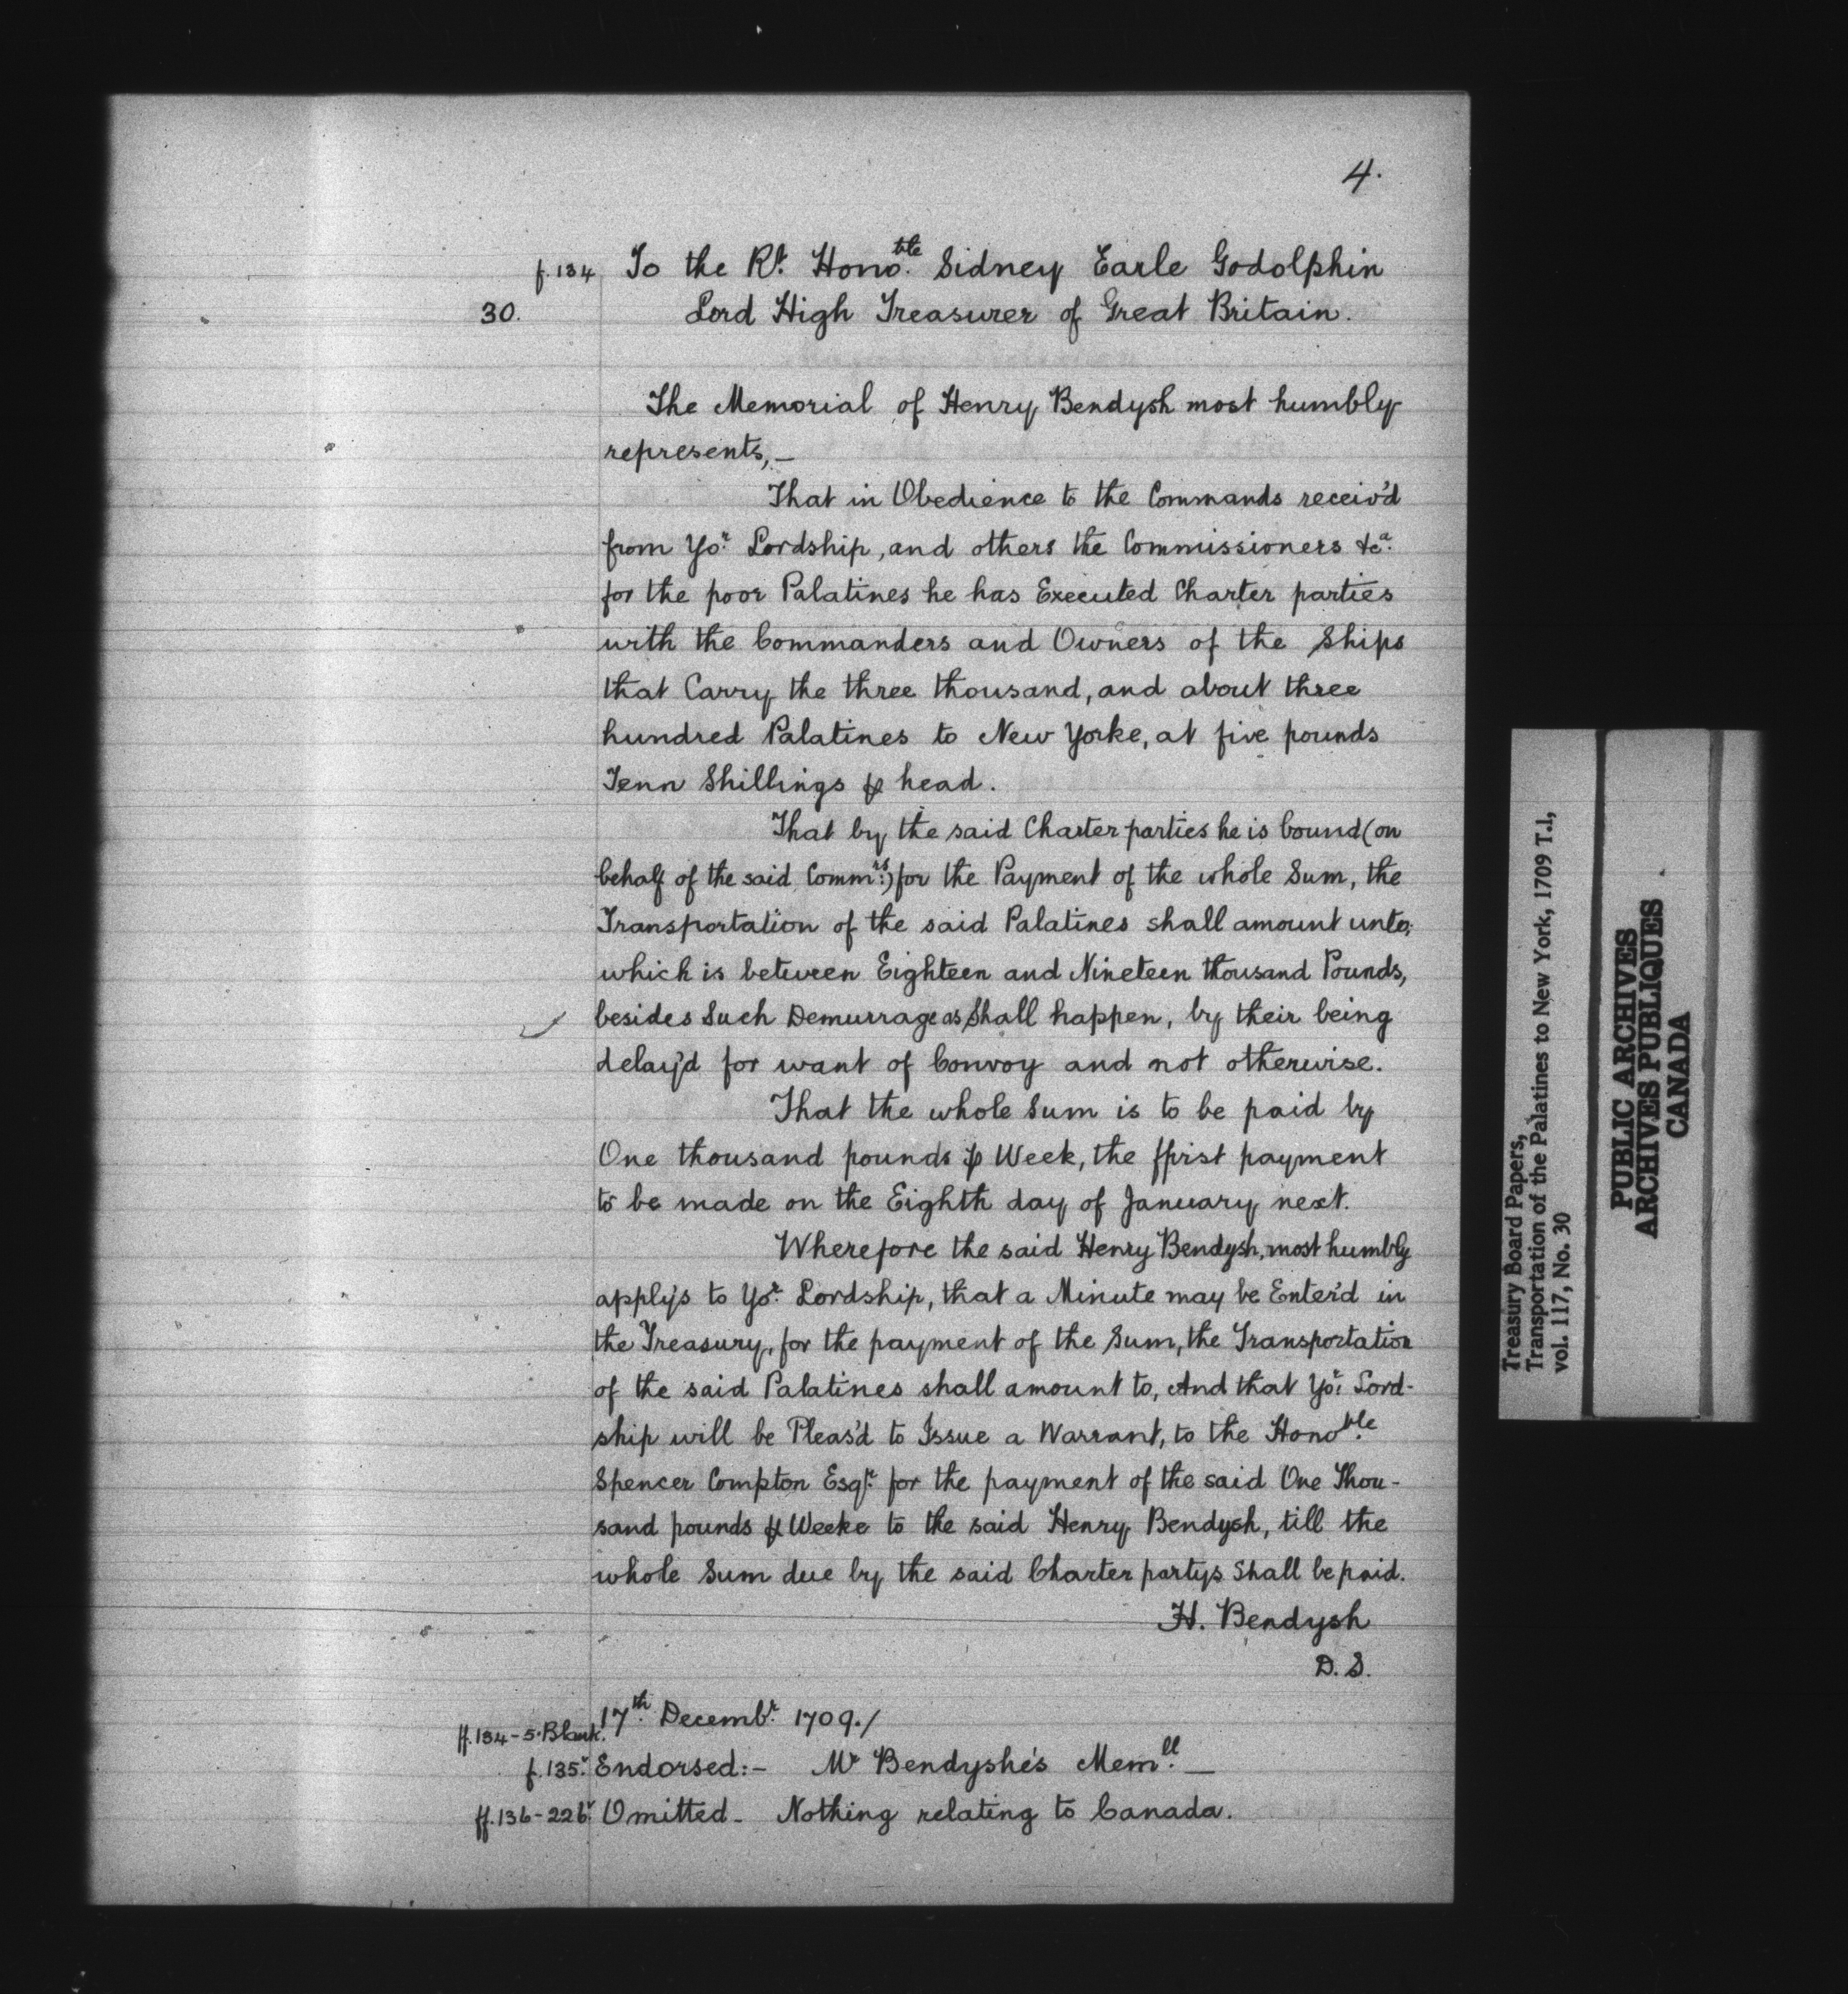 4.
f.134 To the Rt. Honoble. Sidney Earle Godolphin
30. Lord High Treasurer of Great Britain.
The Memorial of Henry Bendysh most humbly
represents,—
That in Obedience to the Commands receiv'd
from Yor. Lordship, and others the Commissioners &ca.
for the poor Palatines he has Executed Charter parties
with the Commanders and Owners of the Ships
that Carry the three thousand, and about three
hundred Palatines to New Yorke, at five pounds
Tenn Shillings ⅌ head.
That by the said Charter parties he is bound (on
behalf of the said Commrs:) for the Payment of the whole Sum, the
Transportation of the said Palatines shall amount unto;
which is between Eighteen and Nineteen thousand Pounds,
besides Such Demurrage as Shall happen, by their being
delay'd for want of Convoy and not otherwise.
That the whole Sum is to be paid by
One thousand pounds ⅌ Week, the ffirst payment
to be made on the Eighth day of January next.
Wherefore the said Henry Bendysh, most humbly
apply's to Yor. Lordship, that a Minute may be Enter'd in
the Treasury, for the payment of the Sum, the Transportation
of the said Palatines shall amount to, And that Yor. Lord-
ship will be Pleas'd to Issue a Warrant, to the Honoble.
Spencer Compton Esqr. for the payment of the said One Thou-
sand pounds ⅌ Weeke to the said Henry Bendysh, till the
whole Sum due by the said Charter partys Shall be paid.
H. Bendysh
D. S.
17th. Decembr. 1709./
ff.134-5. Blank.
f.135v. Endorsed:— Mr Bendyshe's Memll. —
ff.136-226v. Omitted — Nothing relating to Canada.
Treasury Board Papers,
Transportation of the Palatines to New York, 1709 T.1,
vol. 117, No. 30
PUBLIC ARCHIVES
ARCHIVES PUBLIQUES
CANADA